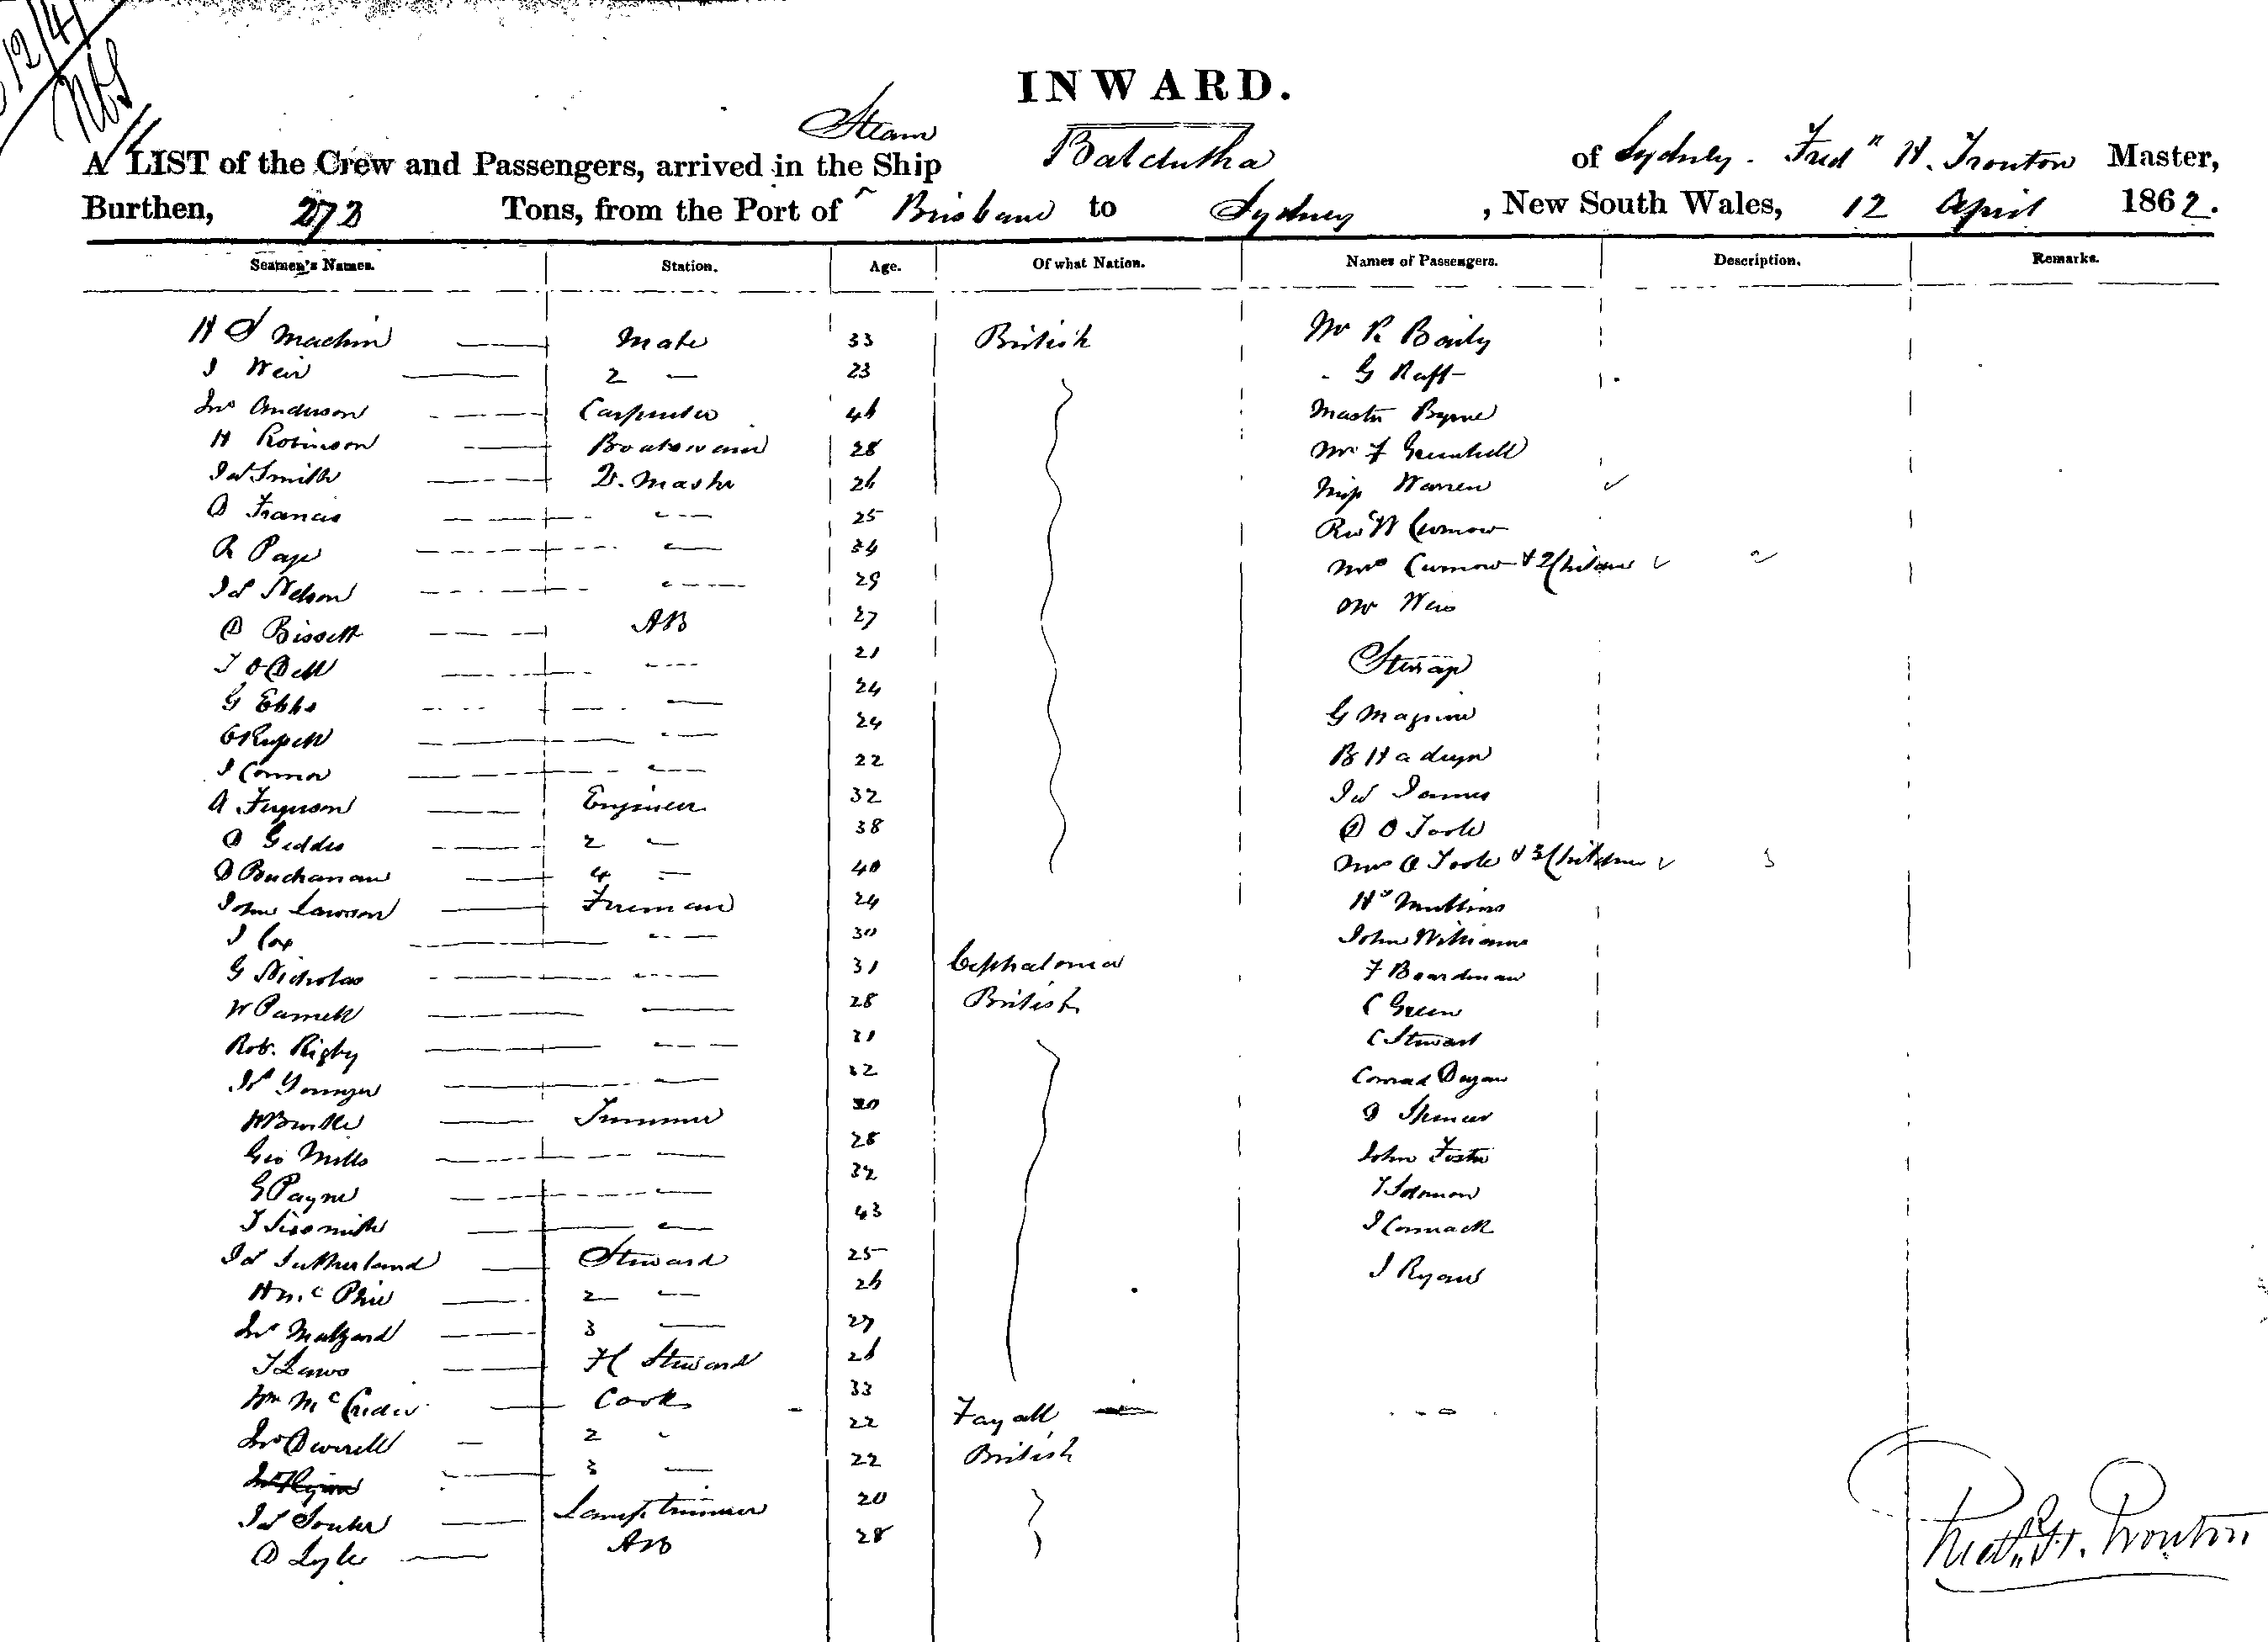 12/4
INWARD.
Steam
A LIST of the Crew and Passengers, arrived in the Ship Balclutha of Sydney. Fred" H. Trouton Master,
Burthen, 272 Tons, from the Port of Brisbane to Sydney, New South Wales, 12 April 1862.
Seamen's Names. Station. Age. Of what Nation. Names of Passengers. Description. Remarks.
H S Machin Mate 33 British Mr R Baily
J Weir 2 — 23 - G Raff
Jno Anderson Carpenter 46 Master Byrne
H Robinson Boatswain 28 Mr F Greenhill
Jas Smith Q. Master 26 Miss Warren
D Francis 25 Rev W Curnow
R Page 34 Mrs Curnow & 2 Children
Jas Nelson 29 Mr Weir
D Bissett AB 27
T O Dell 21 Steerage
G Ebbs 24 G Maguire
24 B Hadwyn
J Connor 22 Jas James
A Ferguson Engineer 32 D O Toole
D Geddes 2 — 38 Mrs O Toole & 3 Children 3
D Buchanan 4 — 40
John Lawson Fireman 24 Hy Mullins
J Cox 30 John Williams
G Nicholas 31 Cephalonia F Boardman
W Parnell 28 British C Green
Robt. Rigby 31 C Stewart
Jas Younger 32 Conrad Dugan
Trimmer 30 D Spencer
Geo Mills 28 John Foster
G Payne 32 T Solomon
J Sixsmith 43 J Cormack
Jas Sutherland Steward 25 J Ryan
H McPhie 2 — 26
Jno Malzard 3 — 27
T Laws F C Steward 26
Wm McCredie Cook 33
Jno Deverell 2 22 Fayall
3 — 22 British
Jas Souter Lamptrimmer 20
D Lyle AB 28
Fred" H. Trouton